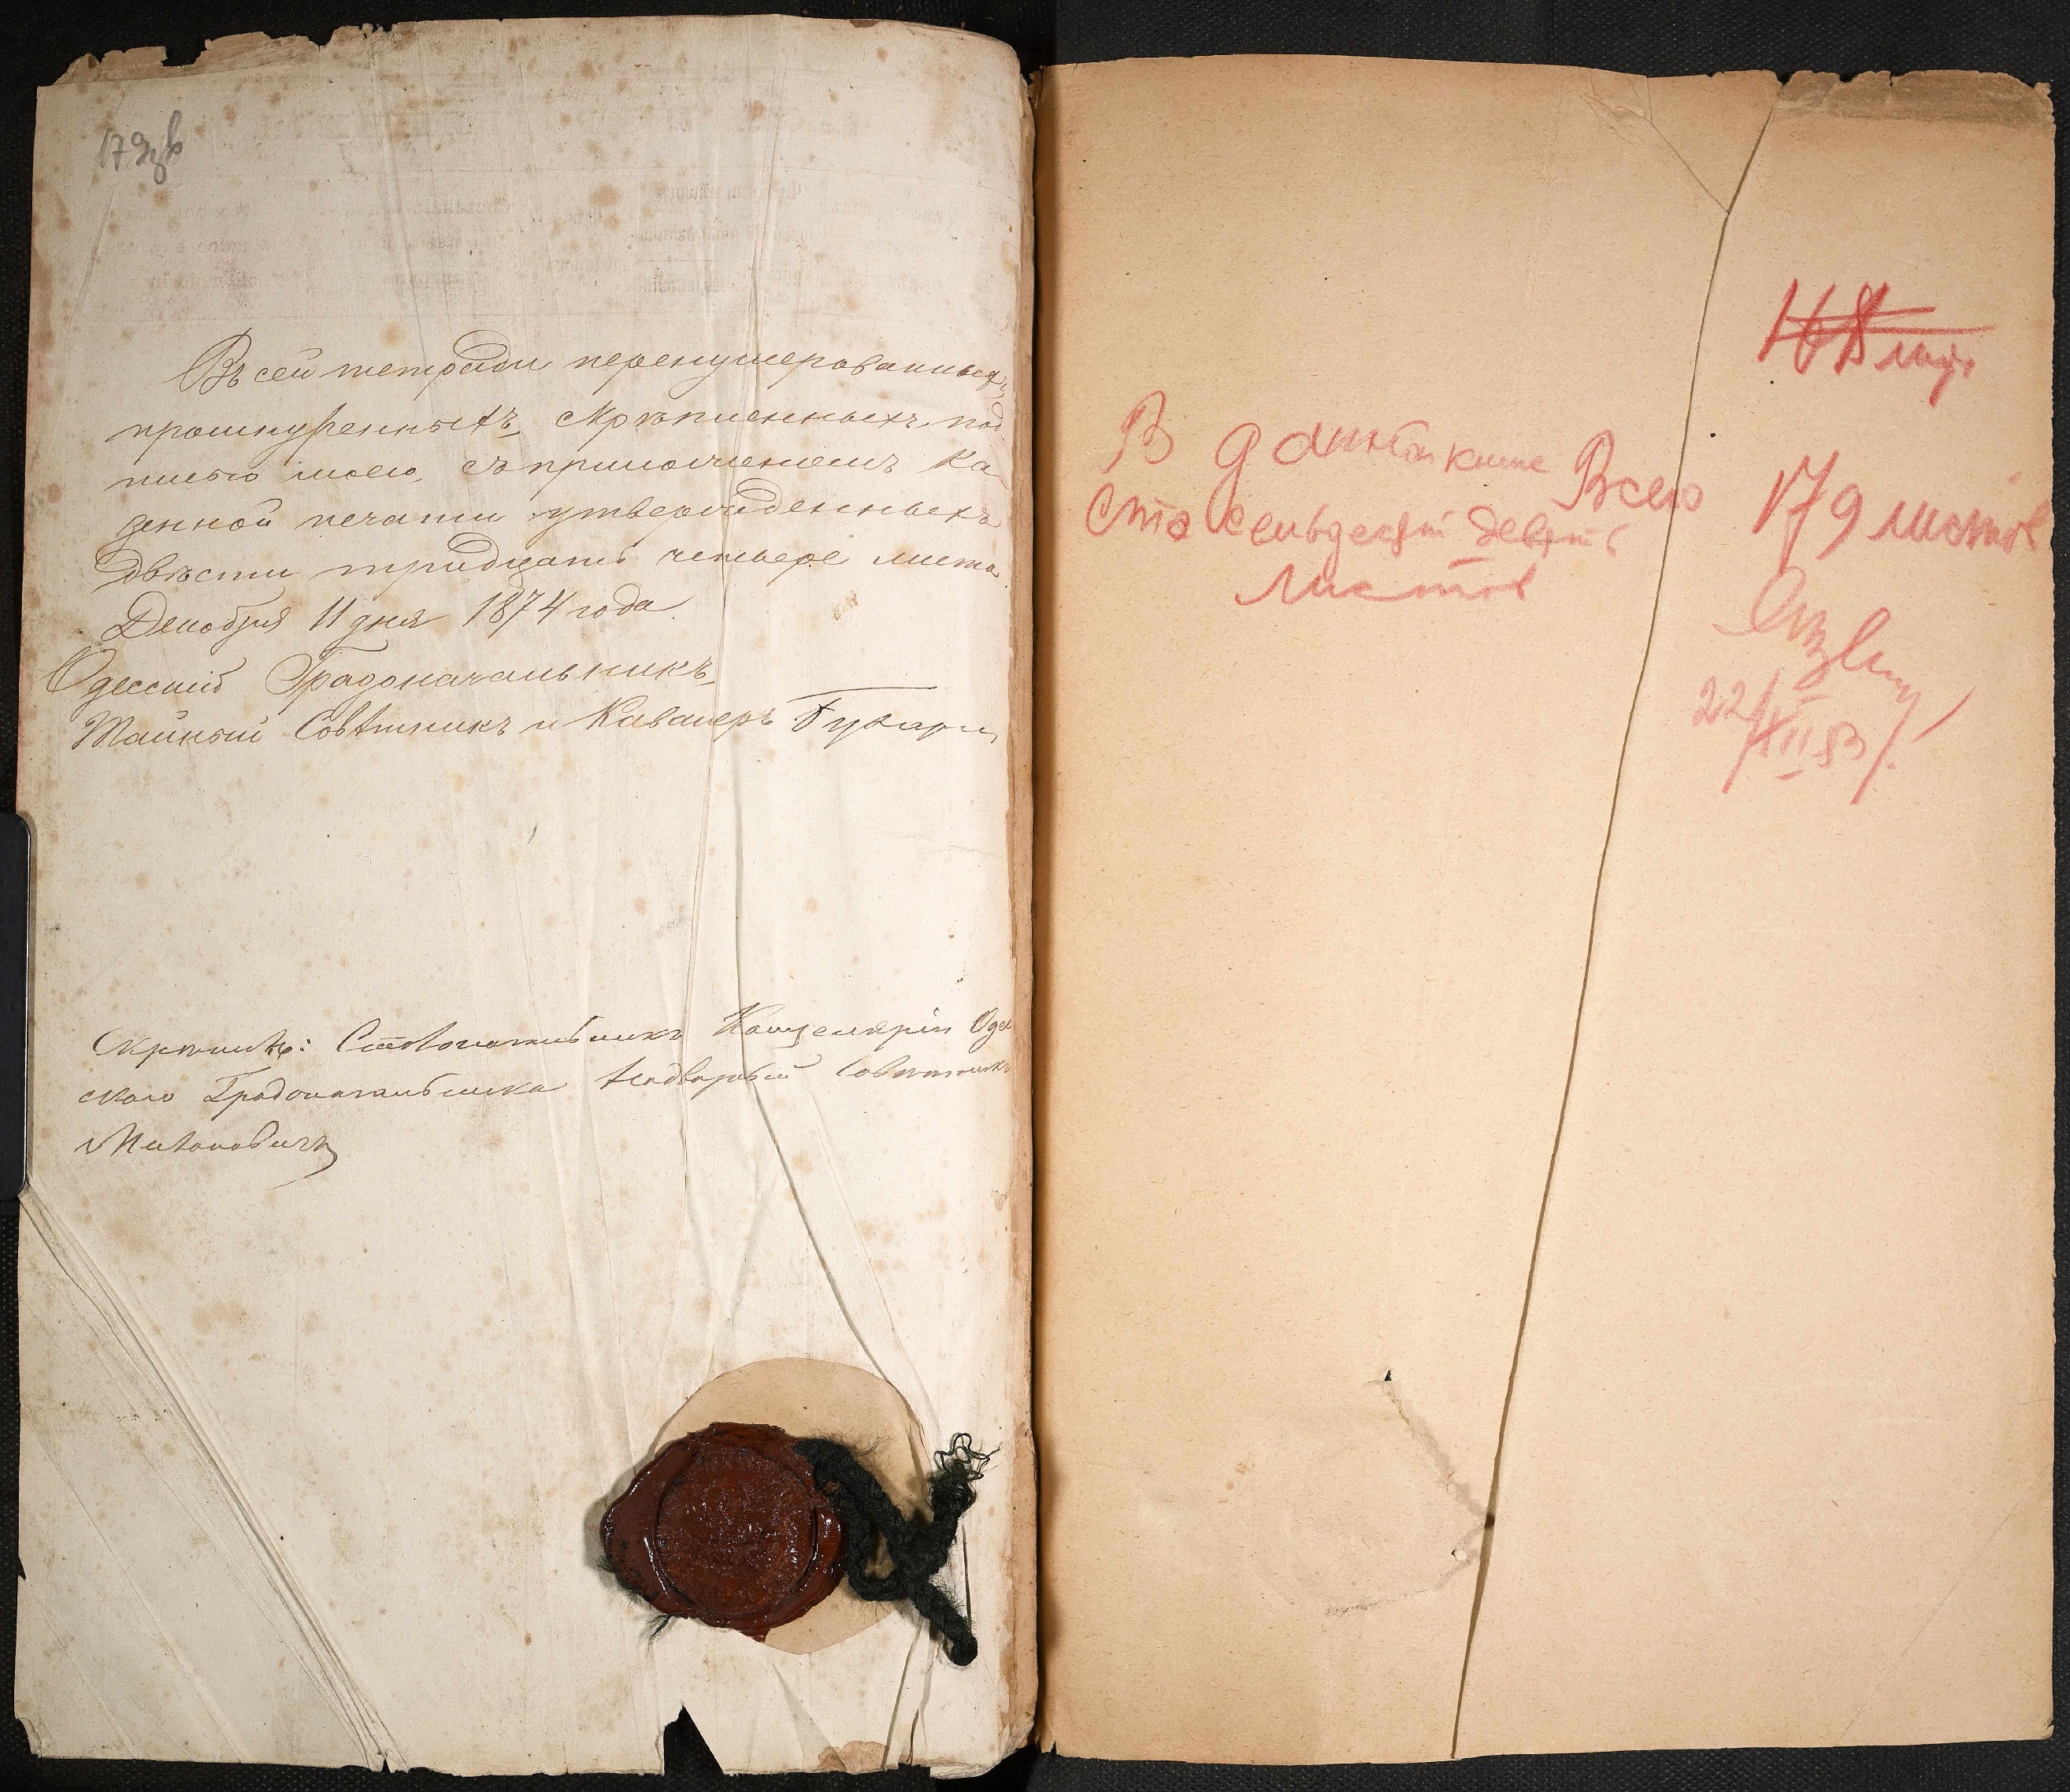 179 об
Въ сей тетради перенумерованныхъ
прошнурованныхъ, скрѣпленныхъ под-
писью моею, съ приложеніемъ ка-
зенной печати утвержденныхъ
двѣсти тридцать четыре листа
Декабря 11 дня 1874 года
Одесскій Градоначальникъ,
Тайный Совѣтникъ и Кавалеръ Бухарин
Скрѣпилъ: Столоначальникъ Канцеляріи Одес
скаго Градоначальника Надворный Совѣтникъ
168 лист.
В данной книге Всего 179 листов
Сто семьдесят девять
листов
22/XII 83 г.